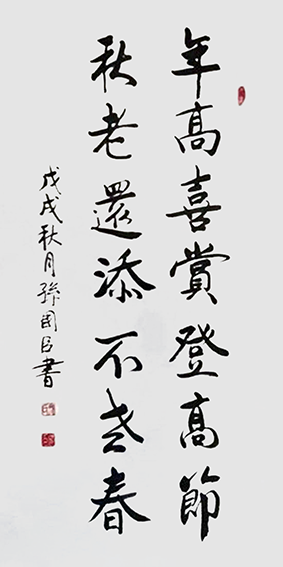 年高喜賞登高節
秋老還添不老春
戊戌秋月孫国臣書